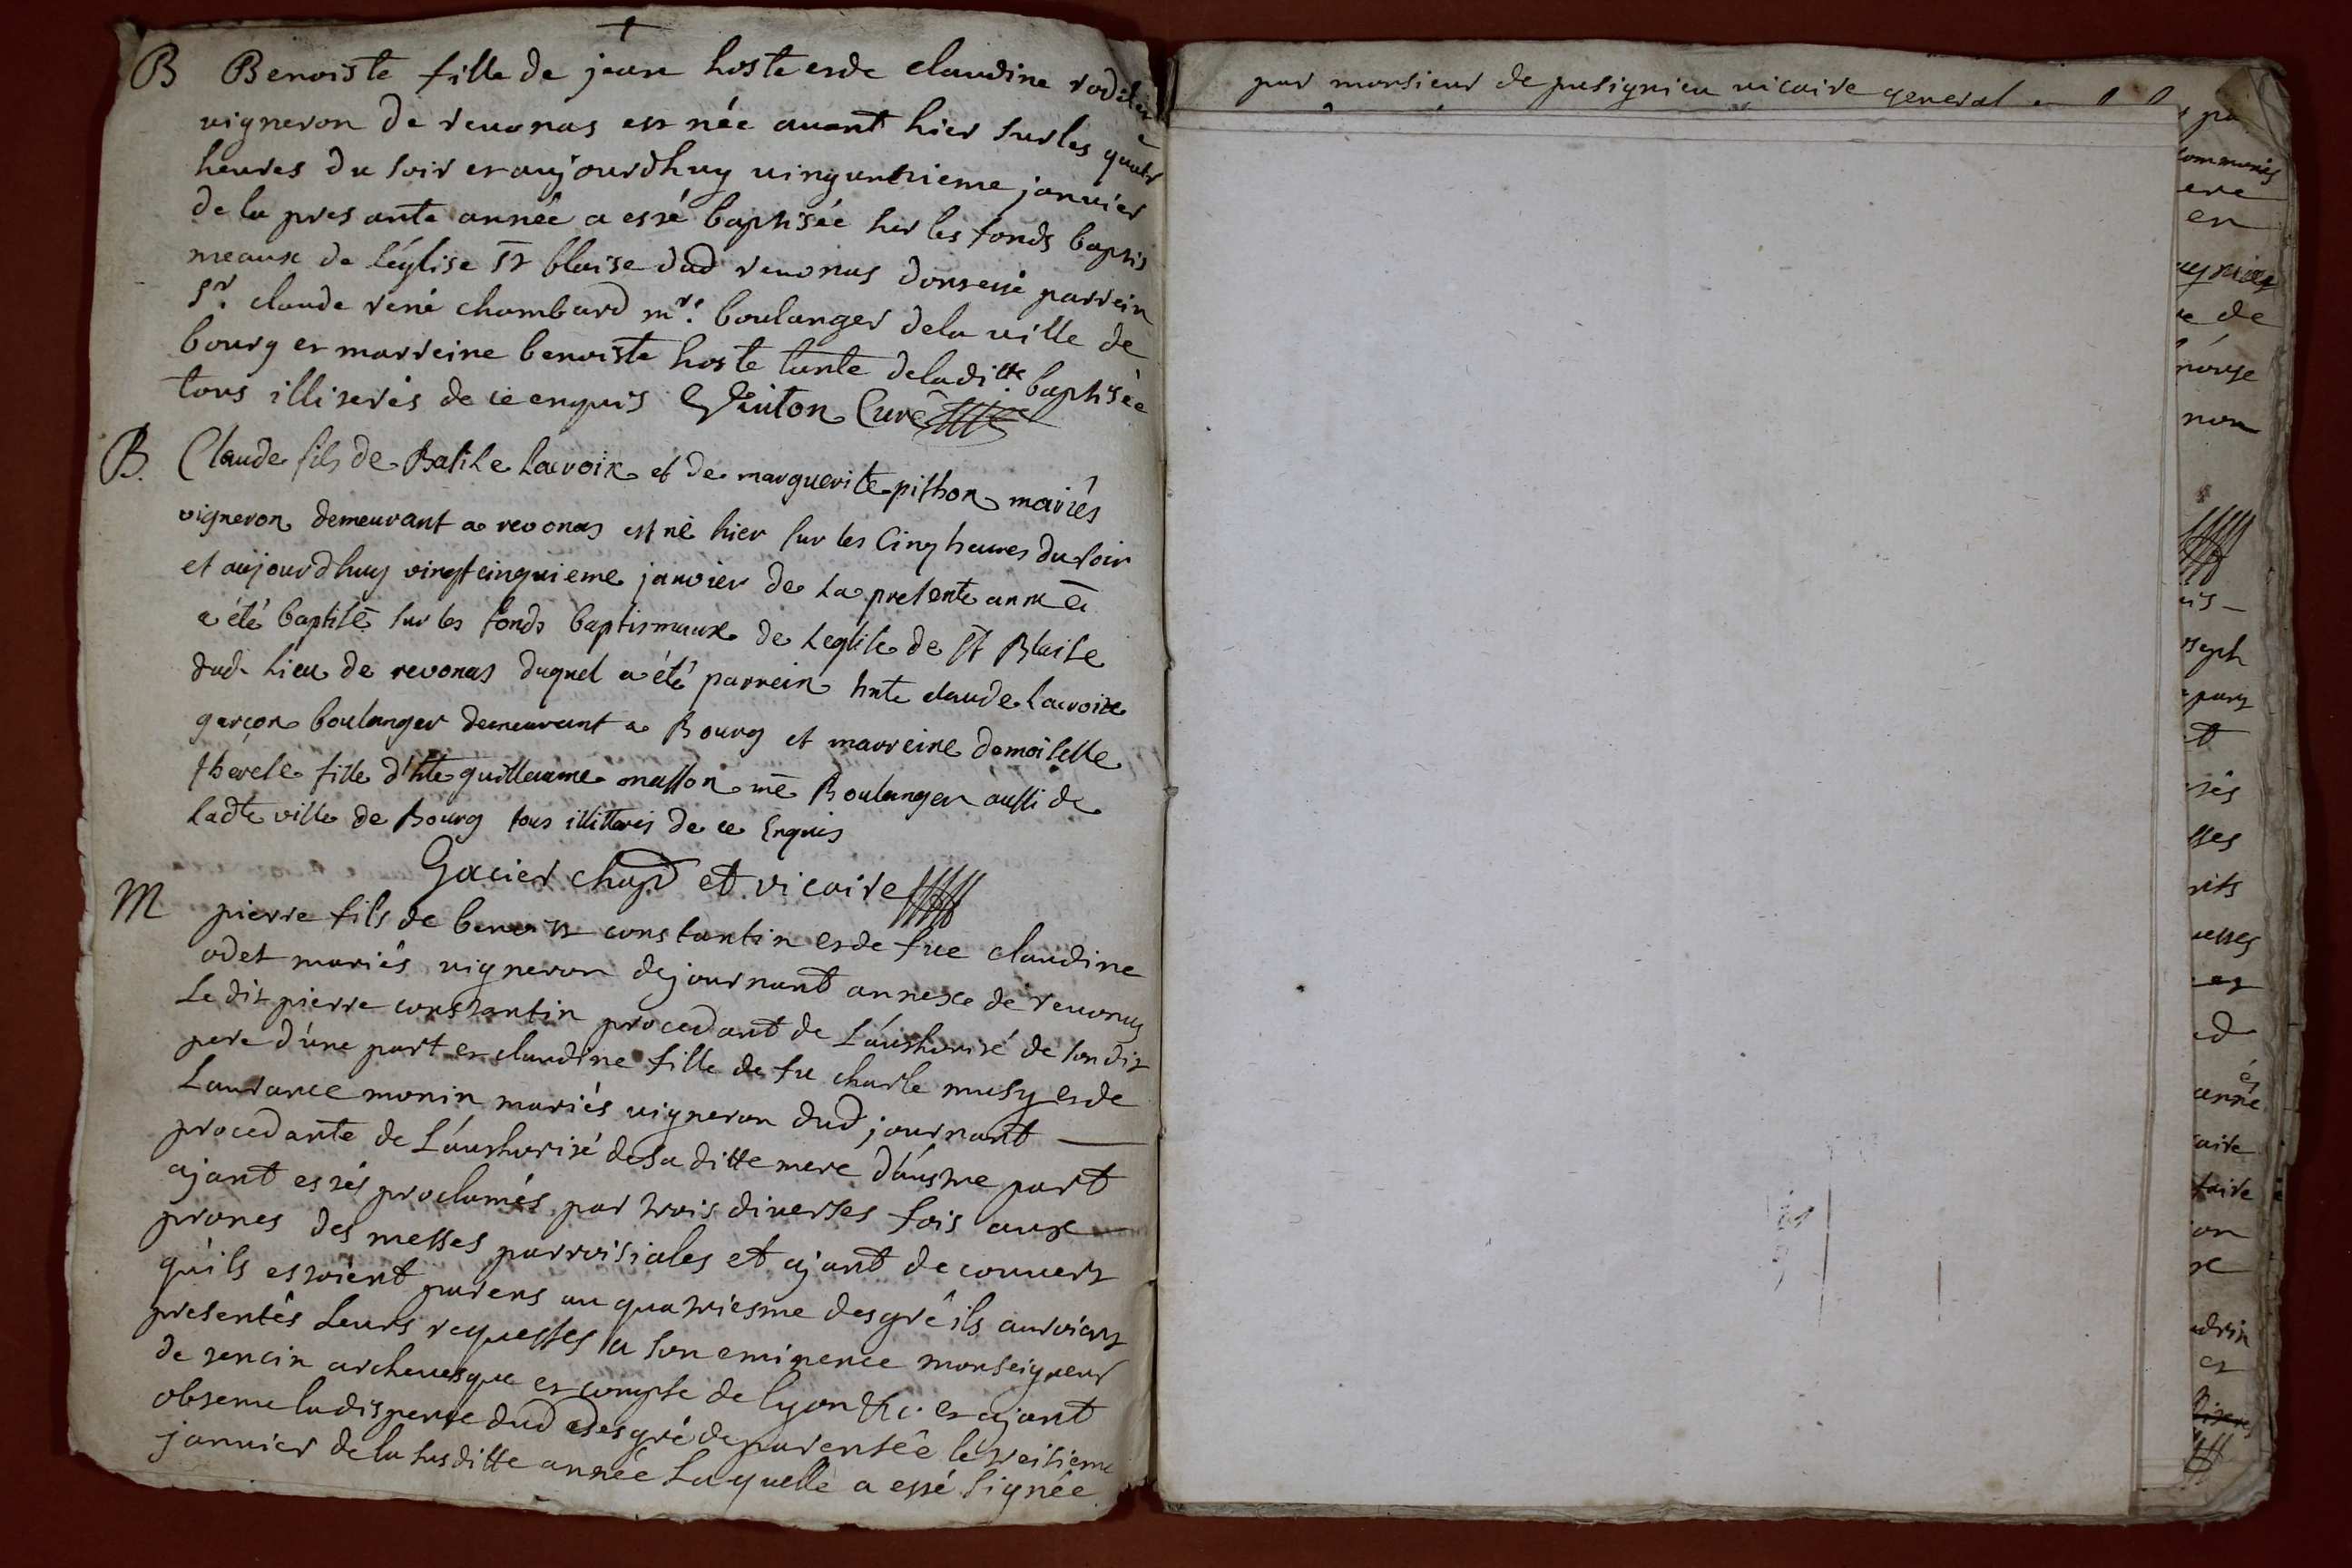 B Benoiste fille de jean hoste et de claudine
vigneron de revonas est née avant hier sur les quatre
heures du soir et aujourdhuy vingunrieme janvier
de la presante année a esté baptisée sur les fonds baptis
meaux de léglise st blaise dud revonas dont esté parrein
sr. claude rené chambard mre. boulanger de la ville de
bourg et marreine benoiste hoste tante de laditte baptisée
tous illiterés de ce enquis Curé
B. Claude fils de Basile Lacroix et de marguerite pithon mariés
vigneron demeurant a revonas est né hier sur les cinq heures du soir
et aujourdhuy vingtcinquieme janvier de la presente année
a été baptisé sur les fonds baptismaux de Leglise de st Blaise
dud. Lieu de revonas duquel a été parrein hnte claude Lacroix
garçon boulanger demeurant a Bourg et marreine demoiselle
therese fille d'hte guillaume masson me Boulanger aussi de
Ladte ville de Bourg tous illiterés de ce Enquis
Gacier chapd et vicaire
M pierre fils de benoist constantin et de fue claudine
odet mariés vigneron de journant annexe de revonas
Le dit pierre constantin procedant de L'authorité de son dit
pere d'une part et claudine fille de fu charle musy et de
Laurance monin mariés vigneron dud journant
procedante de L'authorité de sa ditte mere d'austre part
ajant estés proclamés par trois diverses fois aux
prones des messes parroisiales et ajant decouvert
qu'ils estoient parens au quatriesme desgré ils auroient
presentés Leurs requestes a son eminence monseigneur
de tencin archevesque et compte de lyon &c. et ajant
obtenue la dispense dud desgré de parentée le treisieme
janvier de la susditte année Laquelle a esté signée
par monsieur de pusignieu vicaire general
communis
ere
en
de
non
et
sses
esses
ed
année
caire
faire
on
et